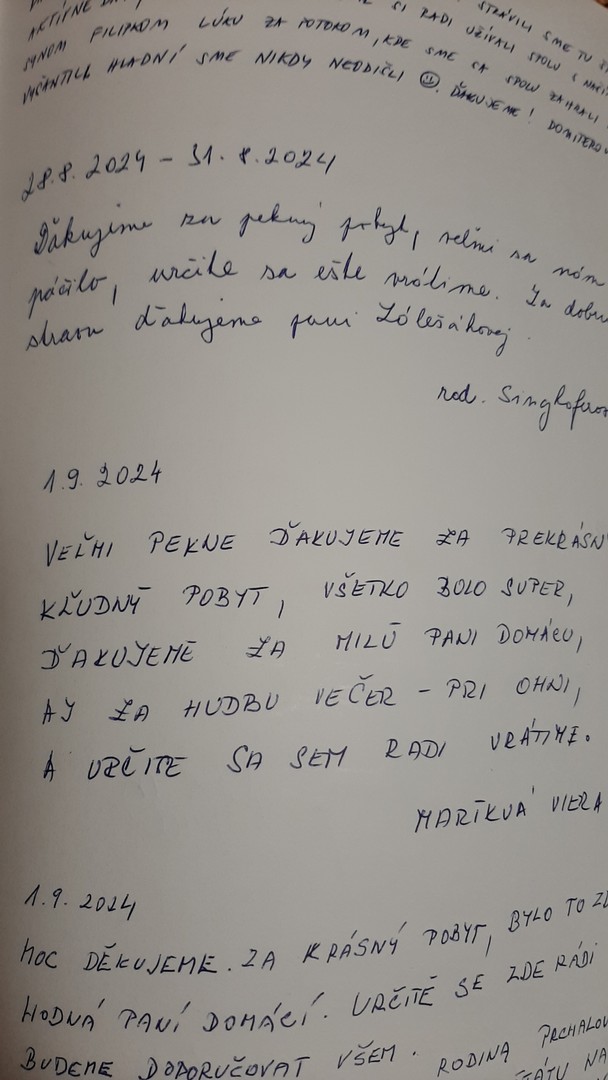 AKTÍVNE
STRÁVILI SME TU
SI RADI UŽÍVALI SPOLU S
SYNOM FILIPKOM LÚKU ZA POTOKOM, KDE SME SA SPOLU ZAHRALI
HLADNÍ SME NIKDY NEODIŠLI ☺. ĎAKUJEME!
28.8.2024 - 31.8.2024
Ďakujeme za pekný pobyt, veľmi sa nám
páčilo, určite sa ešte vrátime. Za dobrú
stravu ďakujeme pani Zólešákovej.
rod.
1.9.2024
VEĽMI PEKNE ĎAKUJEME ZA PREKRÁSN
KĽUDNÝ POBYT, VŠETKO BOLO SUPER,
ĎAKUJEME ZA MILÚ PANI DOMÁCU,
AJ ZA HUDBU VEČER - PRI OHNI,
A URČITE SA SEM RADI VRÁTIME.
MARTKVÁ VIERA
1.9.2024
MOC DĚKUJEME. ZA KRÁSNÝ POBYT, BYLO TO
HODNÁ PANÍ DOMÁCÍ. URČITĚ SE ZDE RÁDI
BUDEME DOPORUČOVAT VŠEM. RODINA